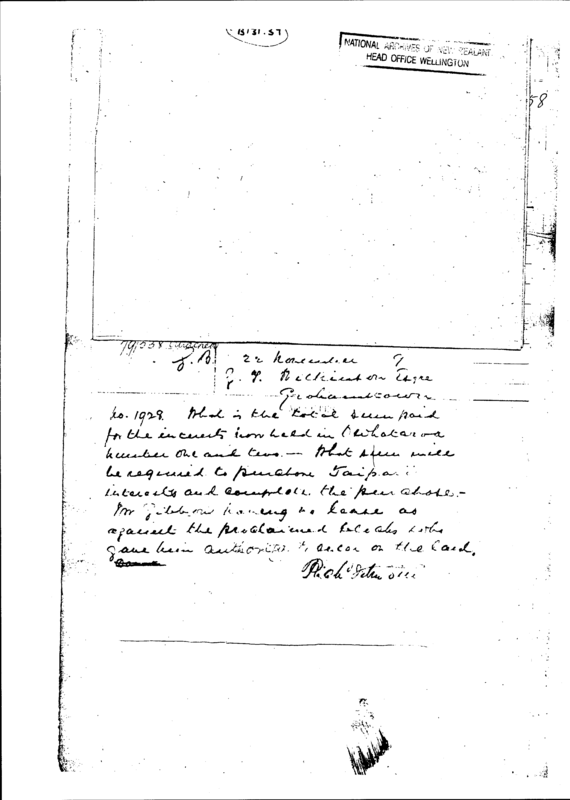 13/31.37
NATIONAL ARCHIVES OF NEW ZEALAND
HEAD OFFICE WELLINGTON
58
79/558
22 November 9
Wilkinson Esqre
Grahamstown
No. 1928. What is the total sum paid
for the interests now held in
number one and two. — What sum will
be required to purchase Taipa
interests and complete the purchase. —
Mr having no lease as
against the proclaimed blocks who
gave him authority to on the land.